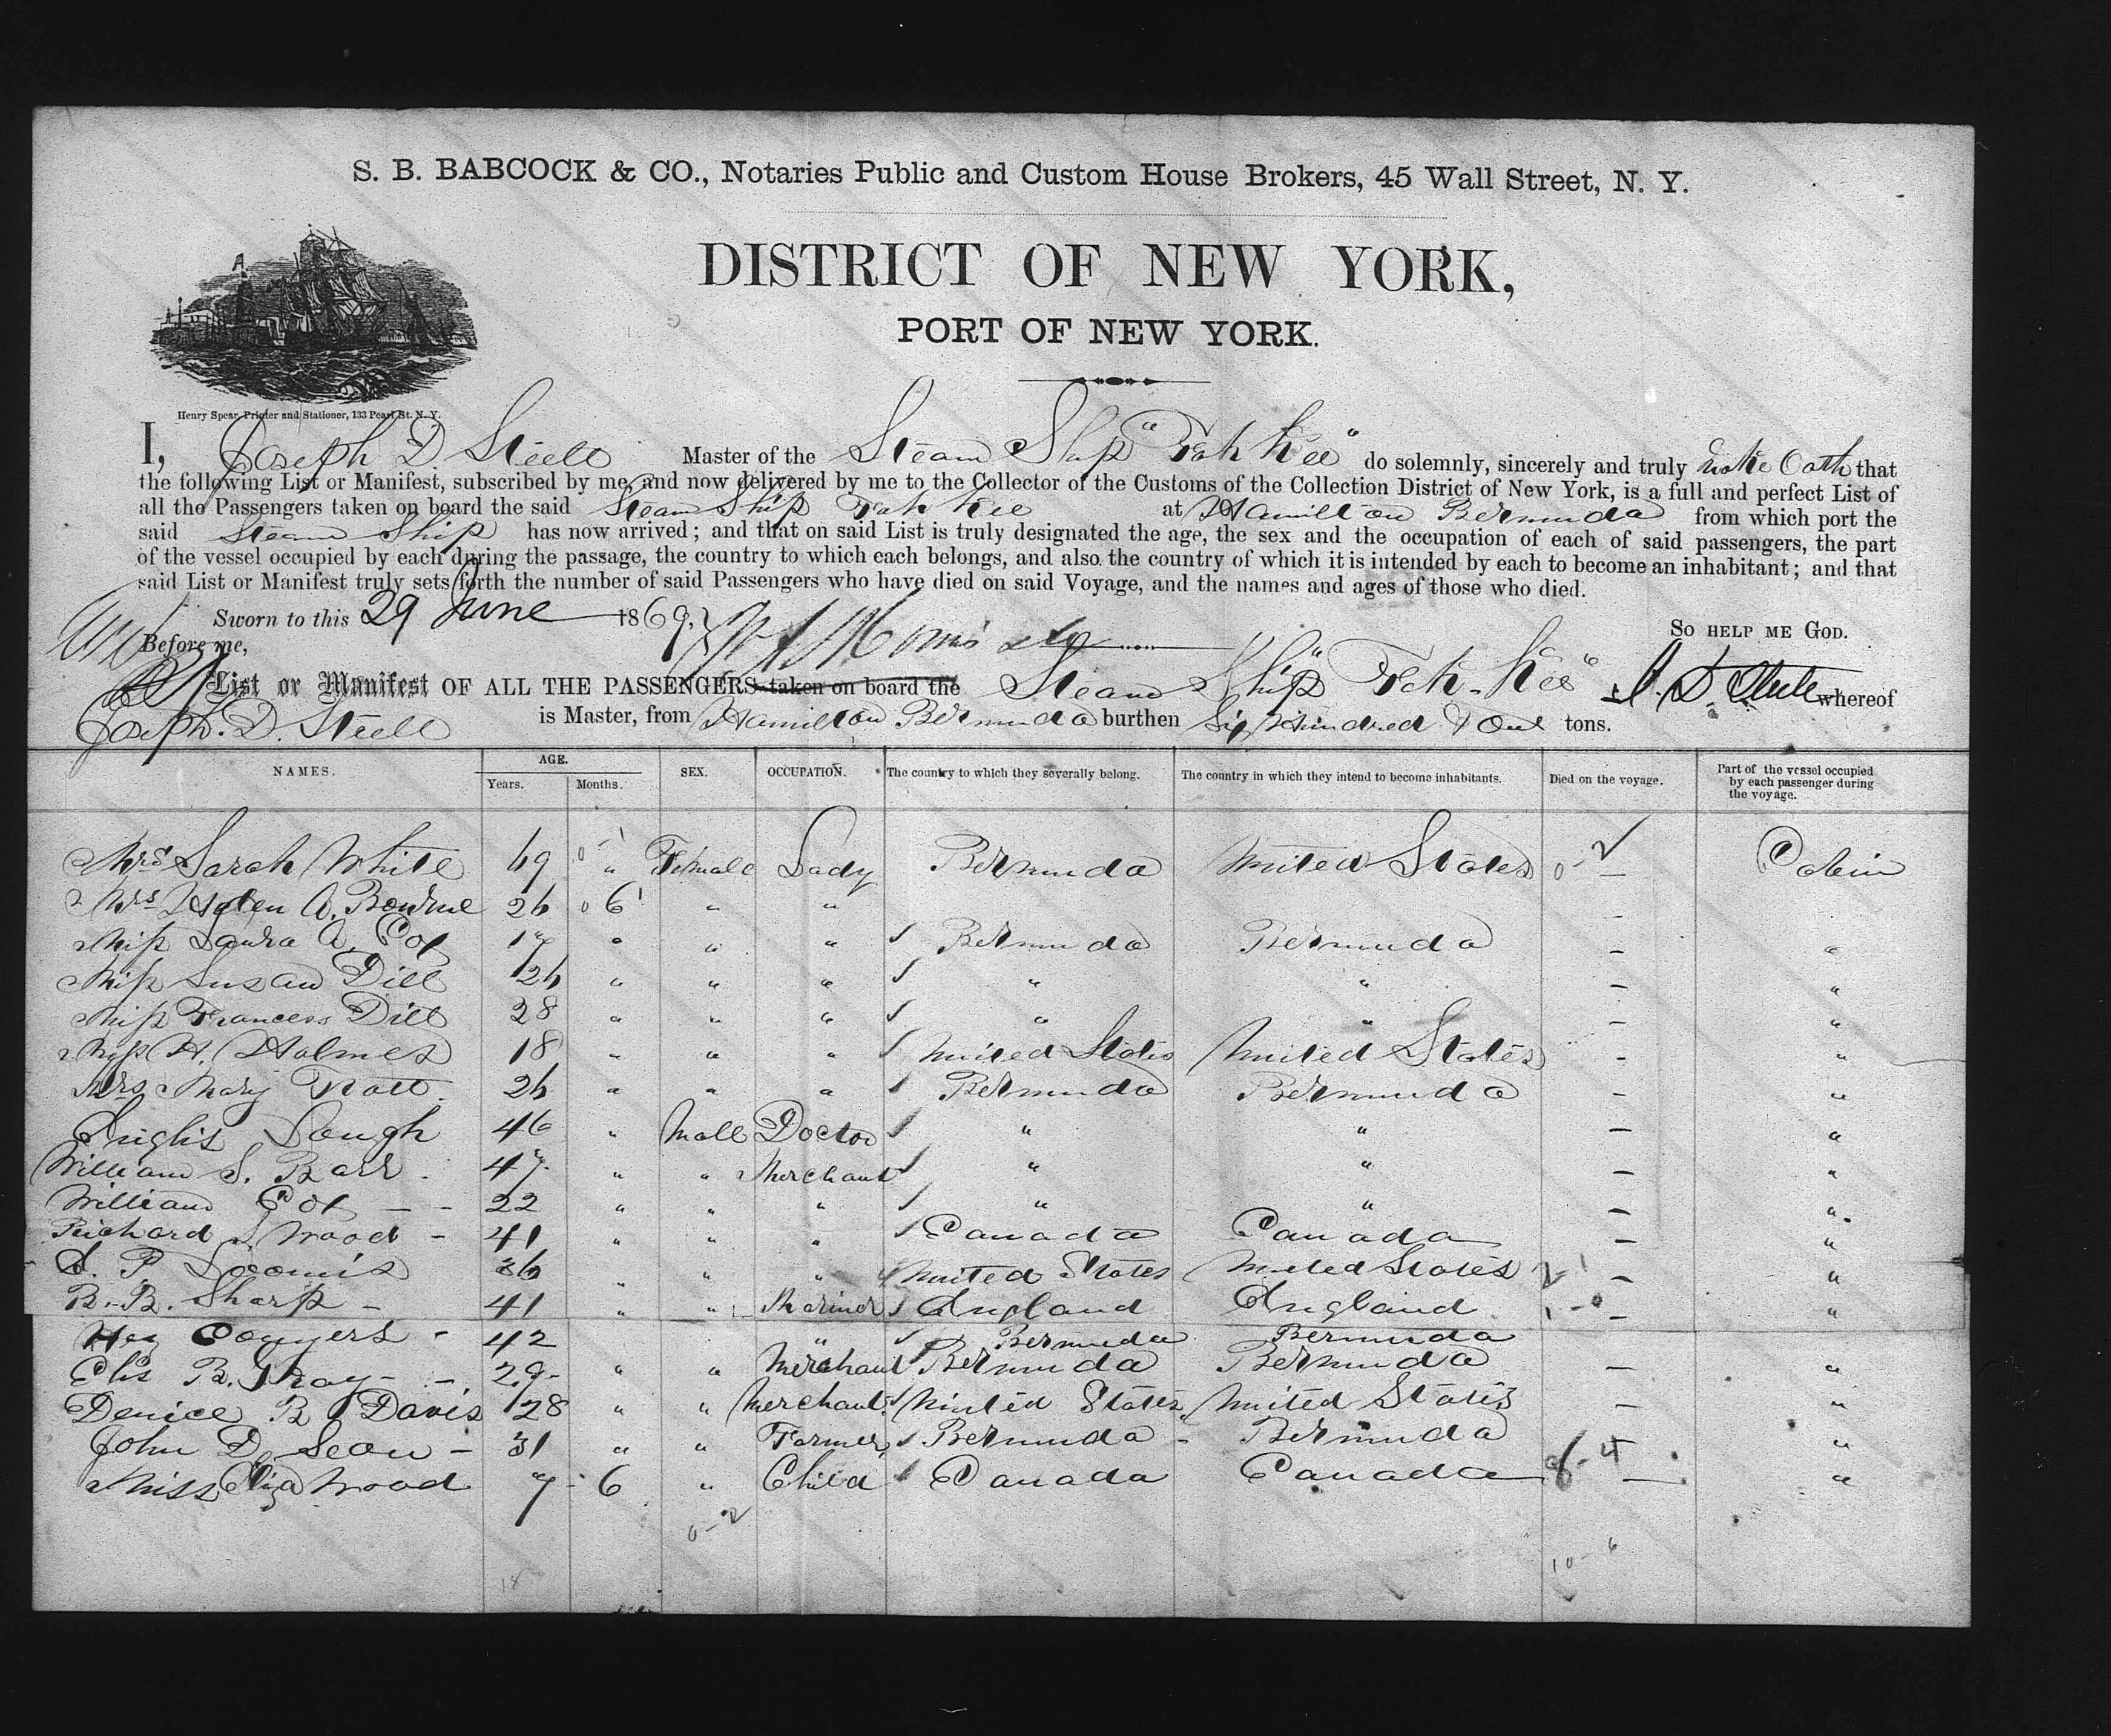 S. B. BABCOCK & CO., Notaries Public and Custom House Brokers, 45 Wall Street, N. Y.
DISTRICT OF NEW YORK,
PORT OF NEW YORK.
Henry Spear, Printer and Stationer, 133 Pearl St. N. Y.
I, Joseph D Steele Master of the Steam Ship "Fah Kee" do solemnly, sincerely and truly make Oath that
the following List or Manifest, subscribed by me, and now delivered by me to the Collector of the Customs of the Collection District of New York, is a full and perfect List of
all the Passengers taken on board the said Steam Ship Fah Kee at Hamilton Bermuda from which port the
said Steam Ship has now arrived; and that on said List is truly designated the age, the sex and the occupation of each of said passengers, the part
of the vessel occupied by each during the passage, the country to which each belongs, and also the country of which it is intended by each to become an inhabitant; and that
said List or Manifest truly sets forth the number of said Passengers who have died on said Voyage, and the names and ages of those who died.
Sworn to this 29 June 1869,
SO HELP ME GOD.
Before me,
List or Manifest OF ALL THE PASSENGERS taken on board the Steam Ship "Fah-Kee" whereof
Joseph. D. Steele is Master, from Hamilton Bermuda burthen Six Hundred & One tons.
NAMES. AGE. Years. Months. SEX. OCCUPATION. The country to which they severally belong. The country in which they intend to become inhabitants. Died on the voyage. Part of the vessel occupied by each passenger during the voyage.
Mrs Sarah White 69 " Female Lady Bermuda United States – Cabin
Mrs Helen A. Bourne 26 6 " " –
Miss Laura A. Cox 17 " " " Bermuda Bermuda – "
Miss Susan Dill 26 " " " " " – "
Miss Frances Dill 28 " " " " " – "
Miss H. Holmes 18 " " " United States United States – "
Mrs Mary Trott 26 " " " Bermuda Bermuda – "
Inglis Lough 46 " Male Doctor " " – "
William S. Barr 47 " " Merchant " " – "
William Cox 22 " " " " " – "
Richard S Wood 41 " " " Canada Canada – "
S. P. Loomis 36 " " " United States United States – "
B. B. Sharp 41 " " Mariner England England – "
Conyers 42 " Bermuda Bermuda
B. Gray 29 " " Merchant Bermuda Bermuda – "
Denice B Davis 28 " " Merchant United States United States – "
John D. Seon 31 " " Farmer Bermuda Bermuda – "
Miss Eliza Wood 7 6 " Child Canada Canada – "